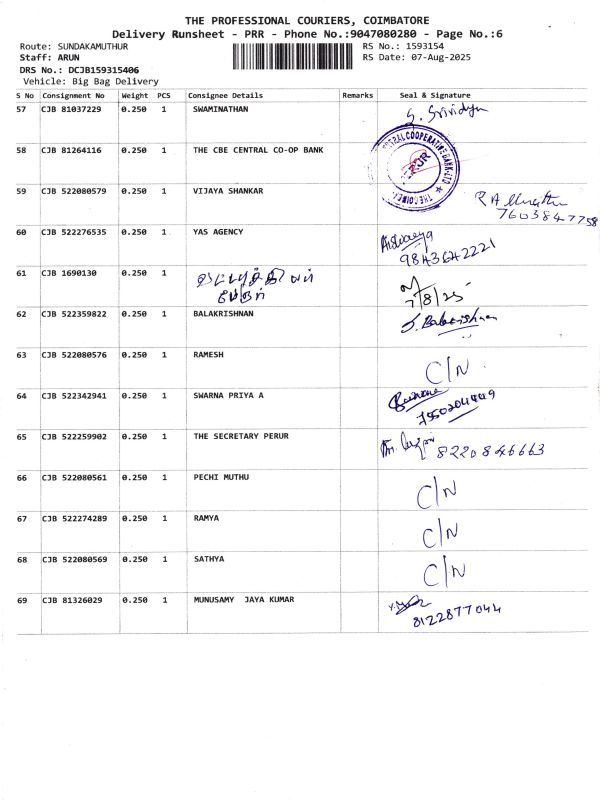 THE PROFESSIONAL COURIERS, COIMBATORE
Delivery Runsheet - PRR - Phone No.:9047080280 - Page No.:6
Route: SUNDAKAMUTHUR RS No.: 1593154
Staff: ARUN RS Date: 07-Aug-2025
DRS No.: DCJB159315406
Vehicle: Big Bag Delivery
S No Consignment No Weight PCS Consignee Details Remarks Seal & Signature
57 CJB 81037229 0.250 1 SWAMINATHAN S. Srividya
58 CJB 81264116 0.250 1 THE CBE CENTRAL CO-OP BANK
59 CJB 522080579 1 VIJAYA SHANKAR
7603847758
60 CJB 522276535 0.250 1 YAS AGENCY Aishwarya
9843642221
61 CJB 1690130 0.250 1
7/8/25
62 CJB 522359822 0.250 1 BALAKRISHNAN S. Balakrishnan
63 CJB 522080576 0.250 1 RAMESH C/N
64 CJB 522342941 0.250 1 SWARNA PRIYA A
65 CJB 522259902 0.250 1 THE SECRETARY PERUR 8220846663
66 CJB 522080561 0.250 1 PECHI MUTHU C/N
67 CJB 522274289 0.250 1 RAMYA C/N
68 CJB 522080569 0.250 1 SATHYA C/N
69 CJB 81326029 0.250 1 MUNUSAMY JAYA KUMAR
8122877044